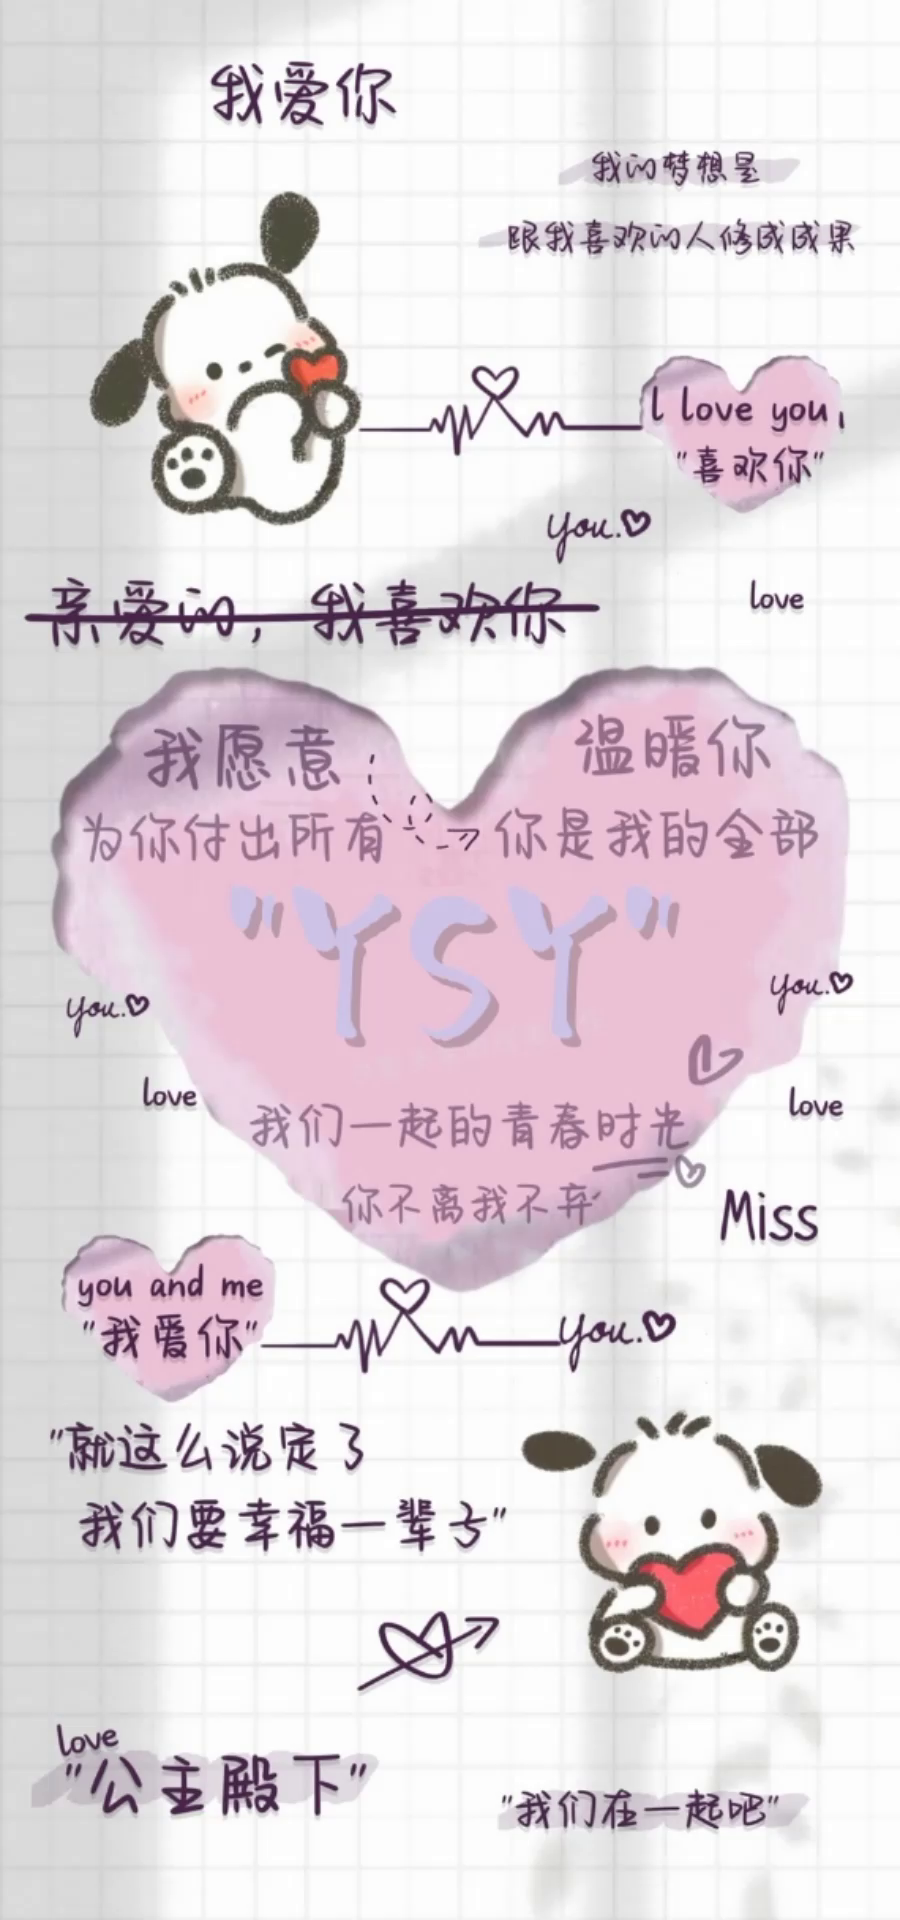 我爱你
我的梦想是
跟我喜欢的人修成成果
I love you,
"喜欢你"
you.
love
亲爱的，我喜欢你
我愿意
温暖你
为你付出所有
你是我的全部
"YSY"
you.
you.
love
love
我们一起的青春时光
你不离我不弃
Miss
you and me
"我爱你"
you.
"就这么说定了
我们要幸福一辈子"
love
"公主殿下"
"我们在一起吧"